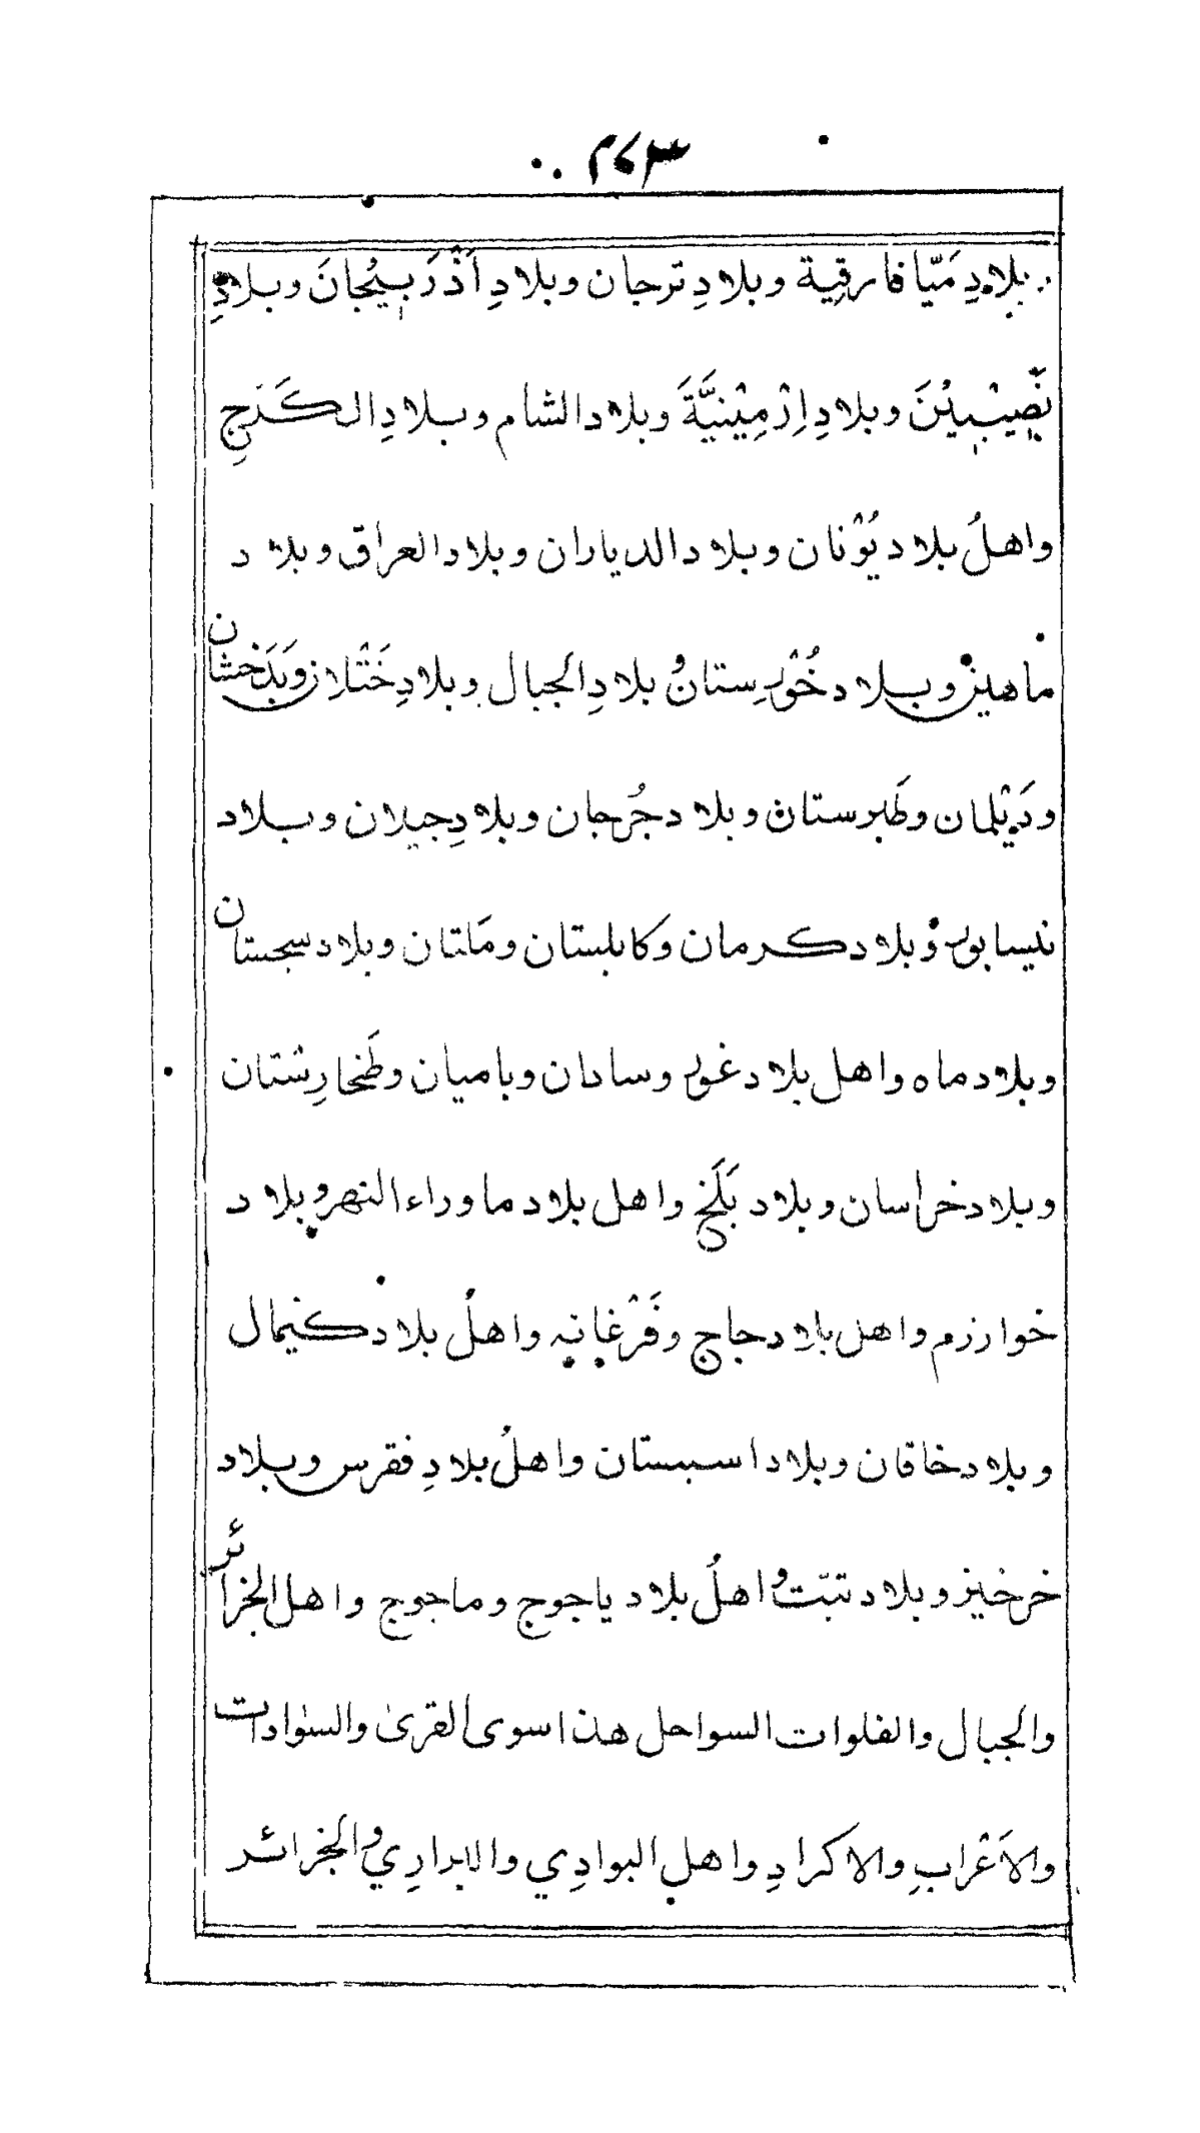 ٢٦٣
بلادِ مَيّا فارقِية وبلادِ ترجان وبلادِ اَذْرَبِيْجانَ وبلادِ
نَصِيْبِيْنَ وبلادِ اِرْمِيْنِيَّةَ وبلاد الشام وبلادِ الكَرَجِ
واهلُ بلاد يُوْنان وبلاد الدياران وبلاد العراق وبلاد
ماهين وبلاد خُوْرِستان و بلادِ الجبال وبلادِ خَتْلان وبَدَخشان
ودَيْلمان وطَبرستان وبلاد جُرجان وبلادِ جيلان وبلاد
نيسابور وبلاد كرمان وكابلستان ومَلتان وبلاد سجستان
وبلاد ماه واهل بلاد غور وسادان وباميان وطَخارِستان
وبلاد خراسان وبلاد بَلَخ واهل بلاد ماوراء النهر وبلاد
خوارزم واهل بلاد حاج وفَرْغانه واهلُ بلاد كنمال
وبلاد خاقان وبلاد اسبستان واهلُ بلادِ فقرس وبلاد
خرخيز وبلاد تبّت واهلُ بلاد ياجوج وماجوج واهل الخرائر
والجبال والفلوات السواحل هذا سوى القرىٰ والسوادات
والاَعْرابِ والاكرادِ واهلِ البوادِي والابرارِي والخرائر